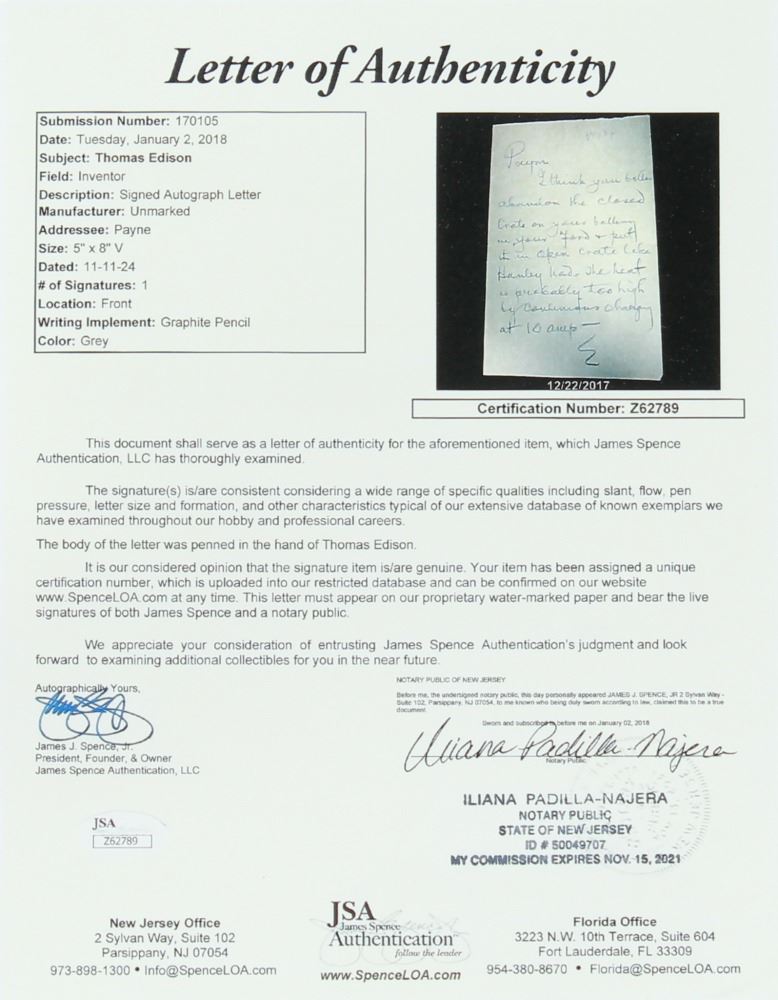 Letter of Authenticity
Submission Number: 170105
Date: Tuesday, January 2, 2018
Subject: Thomas Edison
Field: Inventor
Description: Signed Autograph Letter
Manufacturer: Unmarked
Addressee: Payne
Size: 5" x 8" V
Dated: 11-11-24
# of Signatures: 1
Location: Front
Writing Implement: Graphite Pencil
Color: Grey
I think you better
abandon the closed
Crate on your battery
in your Ford & put
it in Open Crate like
Hanley had. The heat
is probably too high
by Continuous charging
at 10 amp —
E
12/22/2017
Certification Number: Z62789
This document shall serve as a letter of authenticity for the aforementioned item, which James Spence
Authentication, LLC has thoroughly examined.
The signature(s) is/are consistent considering a wide range of specific qualities including slant, flow, pen
pressure, letter size and formation, and other characteristics typical of our extensive database of known exemplars we
have examined throughout our hobby and professional careers.
The body of the letter was penned in the hand of Thomas Edison.
It is our considered opinion that the signature item is/are genuine. Your item has been assigned a unique
certification number, which is uploaded into our restricted database and can be confirmed on our website
www.SpenceLOA.com at any time. This letter must appear on our proprietary water-marked paper and bear the live
signatures of both James Spence and a notary public.
We appreciate your consideration of entrusting James Spence Authentication's judgment and look
forward to examining additional collectibles for you in the near future.
Autographically Yours,
James J. Spence, Jr.
President, Founder, & Owner
James Spence Authentication, LLC
NOTARY PUBLIC OF NEW JERSEY
Before me, the undersigned notary public, this day personally appeared JAMES J. SPENCE, JR 2 Sylvan Way -
Suite 102, Parsippany, NJ 07054, to me known who being duly sworn according to law, claimed this to be a true
document.
Sworn and subscribed to before me on January 02, 2018
Iliana Padilla-Najera
Notary Public
ILIANA PADILLA-NAJERA
NOTARY PUBLIC
STATE OF NEW JERSEY
ID # 50049707
MY COMMISSION EXPIRES NOV. 15, 2021
JSA
Z62789
New Jersey Office
2 Sylvan Way, Suite 102
Parsippany, NJ 07054
973-898-1300 • Info@SpenceLOA.com
JSA
James Spence
Authentication
follow the leader
www.SpenceLOA.com
Florida Office
3223 N.W. 10th Terrace, Suite 604
Fort Lauderdale, FL 33309
954-380-8670 • Florida@SpenceLOA.com